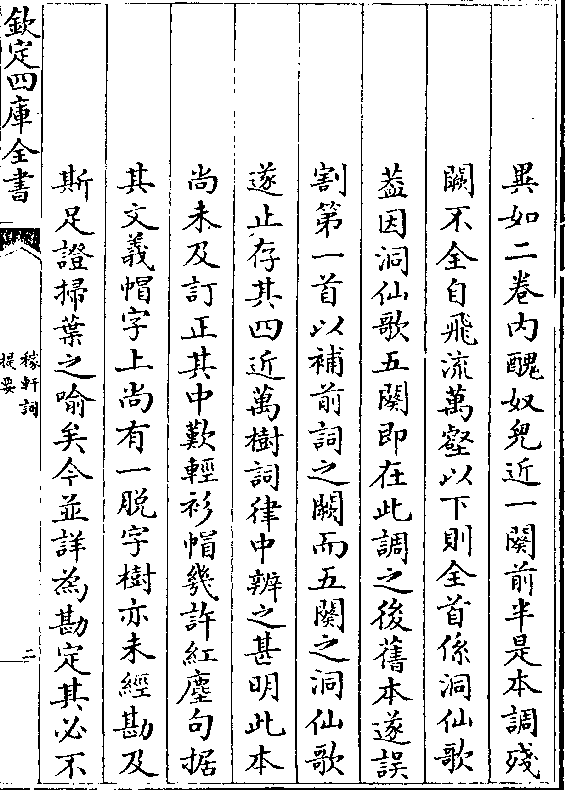 異如二卷内醜奴兒近一闋前半是本調殘
闕不全自飛流萬壑以下則全首係洞仙歌
葢因洞仙歌五闋即在此調之後舊本遂誤
割第一首以補前詞之闕而五闋之洞仙歌
遂止存其四近萬樹詞律中辨之甚明此本
尚未及訂正其中歎輕衫帽幾許紅塵句据
其文義帽字上尚有一脱字樹亦未經勘及
斯足證掃葉之喻矣今並詳為勘定其必不
欽定四庫全書
稼軒詞
提要
二